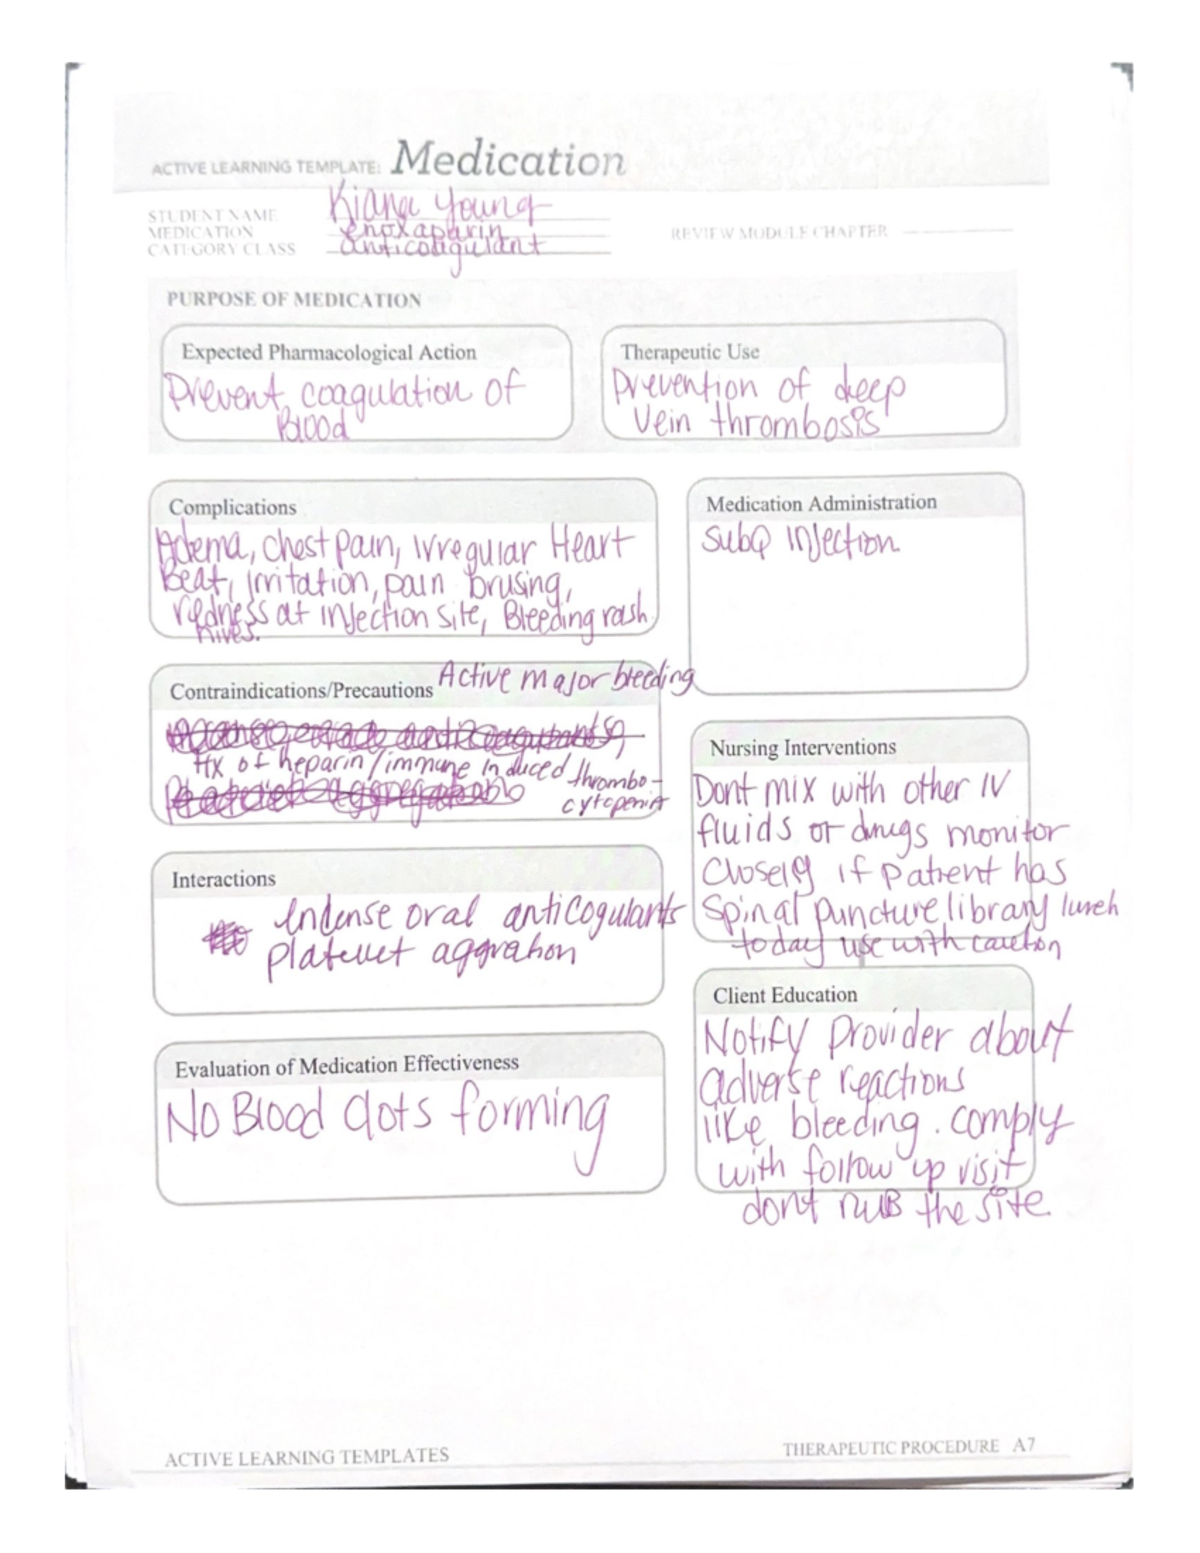 ACTIVE LEARNING TEMPLATE: Medication
STUDENT NAME Kiana Young
MEDICATION enoxaparin
CATEGORY CLASS anticoagulant
REVIEW MODULE CHAPTER
PURPOSE OF MEDICATION
Expected Pharmacological Action
Prevent coagulation of
Blood
Therapeutic Use
Prevention of deep
Vein thrombosis
Complications
Adema, chest pain, irregular Heart
Beat, irritation, pain brusing,
redness at injection site, Bleeding rash
hives.
Medication Administration
SubQ injection
Contraindications/Precautions Active major bleeding
Hx of heparin/immune induced thrombo-
cytopenia
Nursing Interventions
Dont mix with other IV
fluids or drugs monitor
Closely if patient has
Spinal puncture library lunch
today use with caution
Interactions
indense oral anticogulants
plateuet aggration
Client Education
Notify Provider about
adverse reactions
like bleeding. comply
with follow up visit
dont ruB the site.
Evaluation of Medication Effectiveness
No Blood clots forming
ACTIVE LEARNING TEMPLATES
THERAPEUTIC PROCEDURE A7